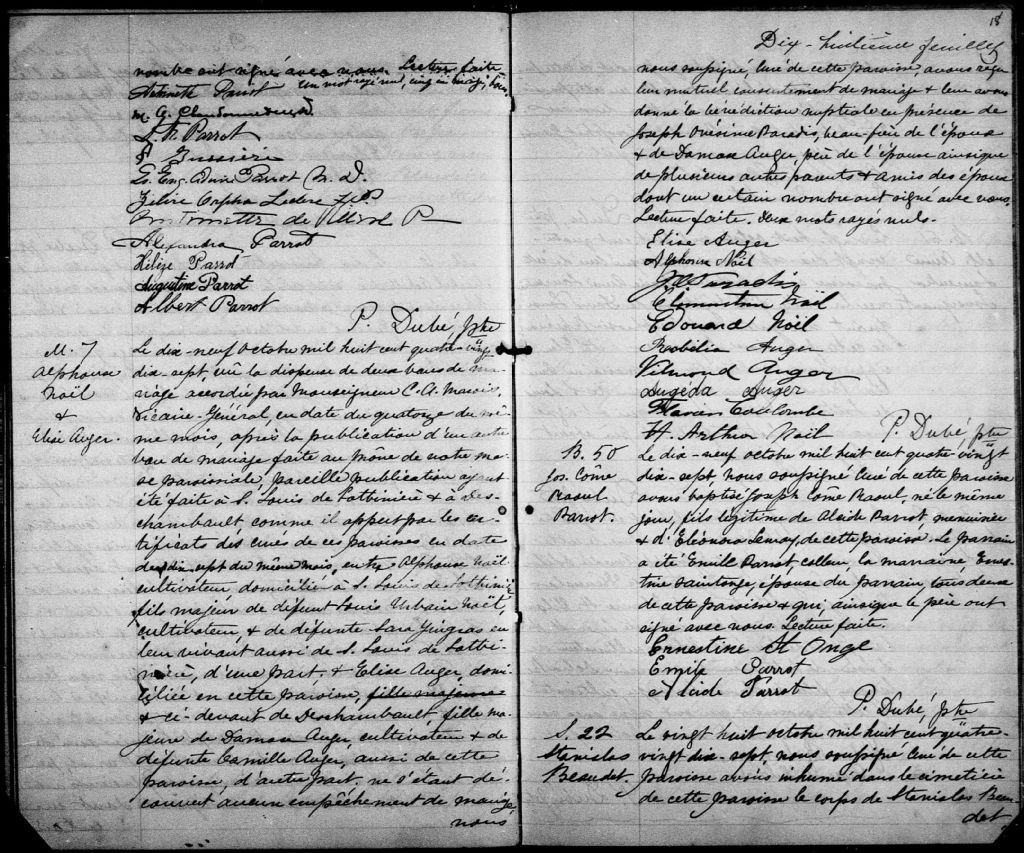 nombre ont signé avec nous. Lecture faite
Antoinette Parrot un mot rayé nul, cinq en marge, bons
M. G.
L. N. Parrot
Bussière
Ls. Eug. Adiu Parrot M. D.
Zélire Orpha Leclerc
de Parrot
Alexandra Parrot
Hélize Parrot
Augustine Parrot
Albert Parrot
P. Dubé, Ptre
M. 7
Alphonse
Noël
&
Elise Auger.
Le dix-neuf Octobre mil huit cent quatre-vingt
dix-sept, vu la dispense de deux bans de ma-
riage accordée par Monseigneur C. A. Marois,
Vicaire-Général, en date du quatorze du mê-
me mois, après la publication d'un autre
ban de mariage faite au prône de notre mes-
se paroissiale, pareille publication ayant
été faite à S. Louis de Lotbinière & à Des-
chambault comme il appert par les cer-
tificats des curés de ces paroisses en date
du dix-sept du même mois, entre Alphonse Noël
cultivateur domicilié à S. Louis de Lotbinière
fils majeur de défunt Louis Urbain Noël,
cultivateur, & de défunte Sara Gingras en
leur vivant aussi de S. Louis de Lotbi-
nière, d'une part, & Elise Auger, domi-
ciliée en cette paroisse, fille majeure
& ci-devant de Deschambault, fille ma-
jeure de Damase Auger, cultivateur & de
défunte Camille Auger, aussi de cette
paroisse, d'autre part, ne s'étant dé-
couvert aucun empêchement de mariage,
nous
18
Dix-huitième feuillet
nous soussigné, Curé de cette paroisse, avons reçu
leur mutuel consentement de mariage & leur avons
donné la bénédiction nuptiale en présence de
Joseph Onésime Paradis, beau-frère de l'épouse
& de Damase Auger, père de l'épouse ainsi que
de plusieurs autres parents & amis des époux
dont un certain nombre ont signé avec nous.
Lecture faite. Deux mots rayés nuls.
Elise Auger
Alphonse Noël
J. O. Paradis
Clémentine Noël
Edouard Noël
Robélia Auger
Vilmond Auger
Augéda Auger
Flavien Coulombe
H. Arthur Noël
P. Dubé, ptre
B. 50
Jos. Côme
Raoul
Parrot.
Le dix-neuf octobre mil huit cent quatre vingt
dix-sept, nous soussigné Curé de cette paroisse
avons baptisé Joseph Côme Raoul, né le même
jour, fils légitime de Alcide Parrot menuisier
& d'Eléonora Lemay, de cette paroisse. Le parrain
a été Emile Parrot, colleur, la marraine Ernes-
tine Saintonge, épouse du parrain, tous deux
de cette paroisse & qui, ainsi que le père ont
signé avec nous. Lecture faite.
Ernestine St Onge
Emile Parrot
Alcide Parrot
P. Dubé, ptre
S. 22
Stanislas
Beaudet.
Le vingt huit octobre mil huit cent quatre-
vingt dix-sept, nous soussigné Curé de cette
paroisse avons inhumé dans le cimetière
de cette paroisse le corps de Stanislas Beau-
det